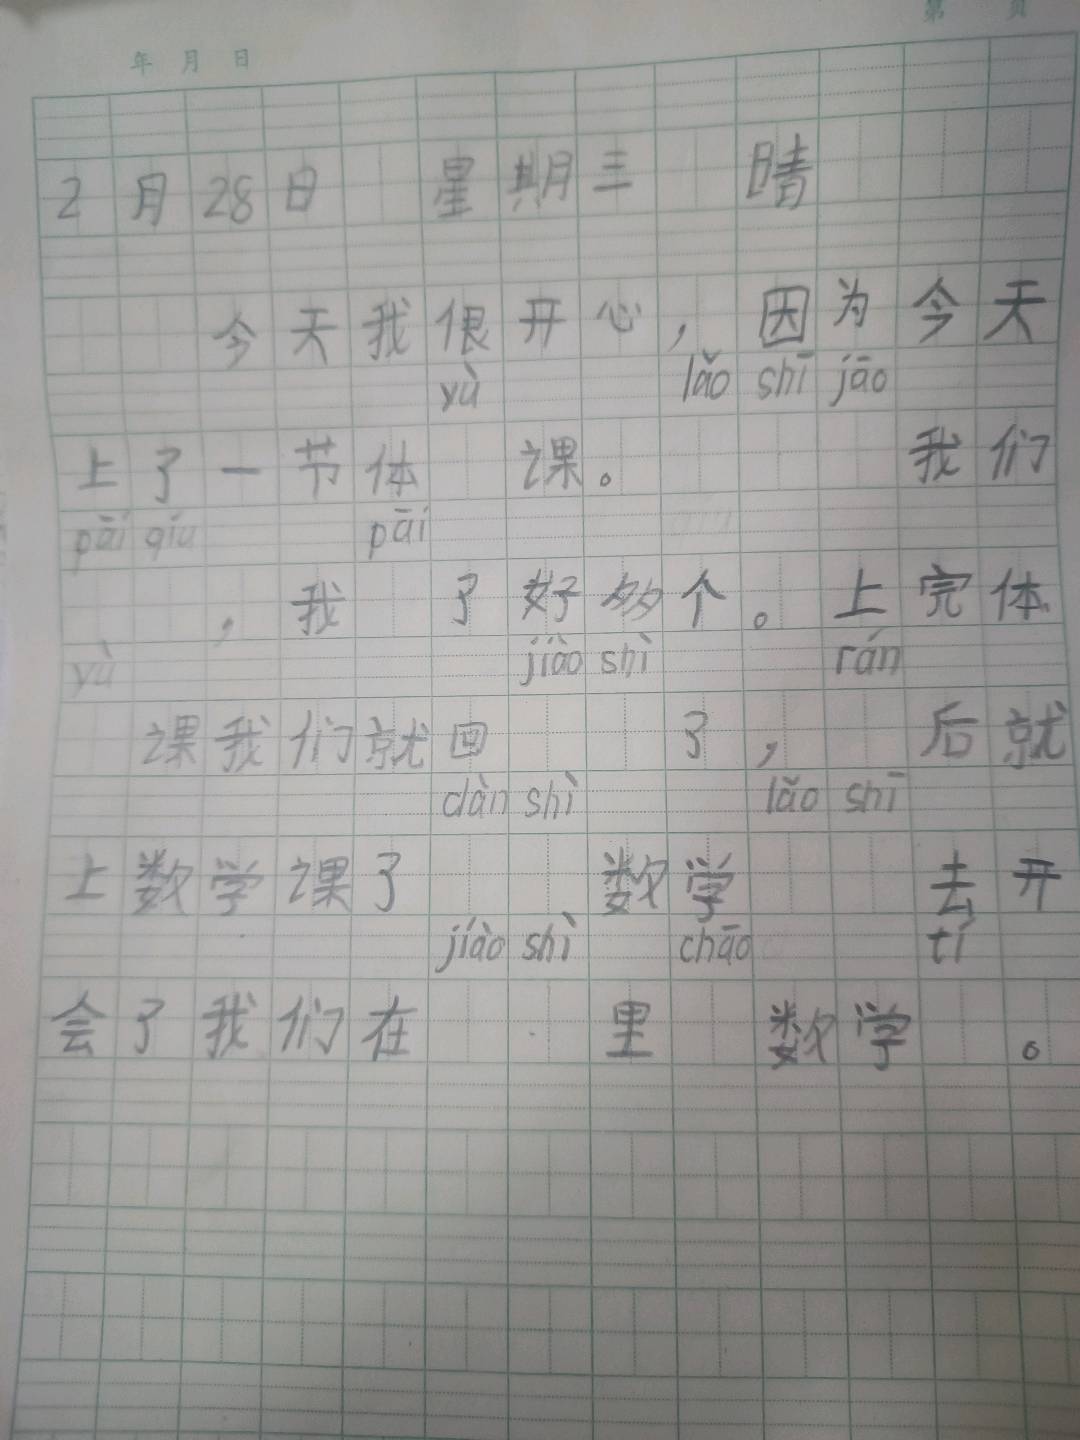 第 页
年 月 日
2月28日 星期三 晴
今天我很开心，因为今天
yù lǎo shī jāo
上了一节体 课。 我们
pāi qiu pāi
，我 了好够个。上完体
yù jiào shì rán
课我们就回 了， 后就
dàn shì lǎo shī
上数学课了 数学 去开
jiào shì chāo tí
会了我们在 里 数学 。